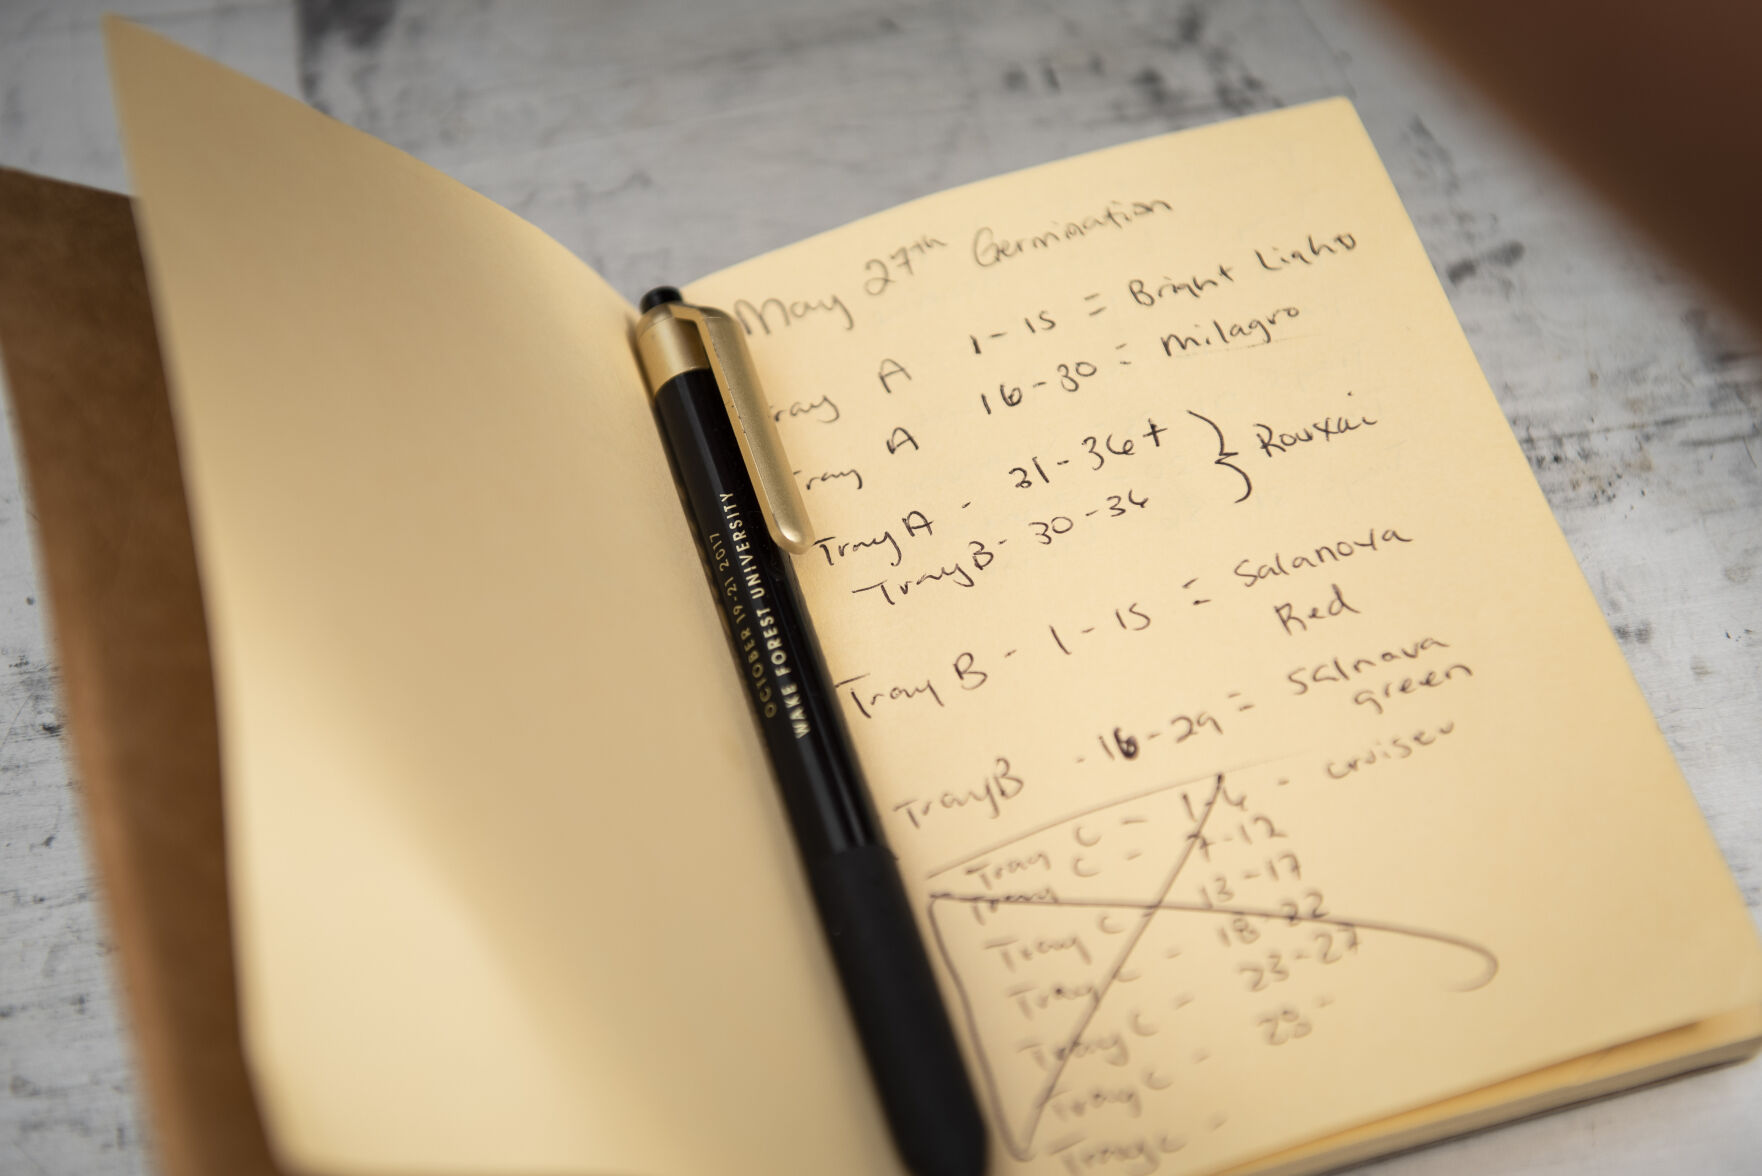 May 27th Germination
Tray A 1-15 = Bright Lights
Tray A 16-30 = Milagro
Tray A - 31-36+ } Rouxai
Tray B - 30-36
Tray B - 1-15 = Salanova
Red
Tray B - 16-29 = Salnava
green
Tray C - 1-6 - cruiser
Tray C - 7-12
Tray C - 13-17
Tray C - 18-22
Tray C - 23-27
Tray C - 28-
Tray C -
OCTOBER 19-21 2017
WAKE FOREST UNIVERSITY